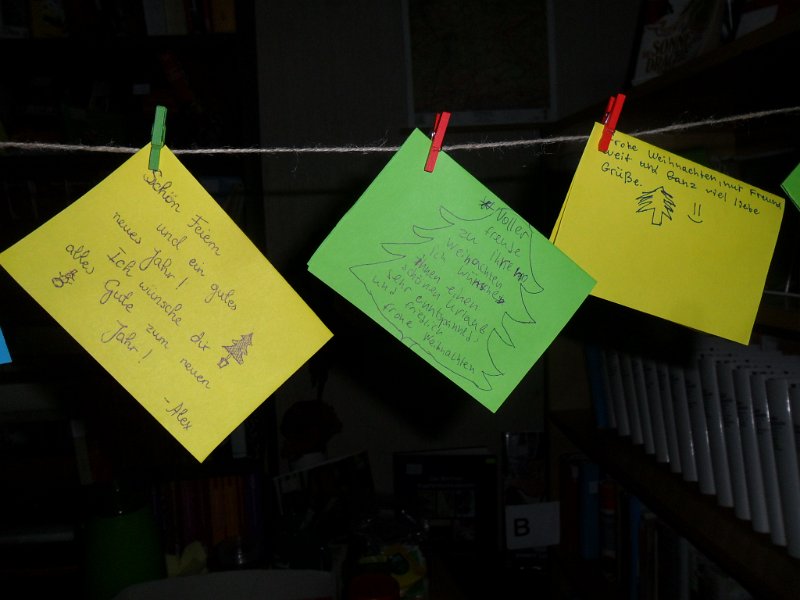 Schön Feiern
und ein gutes
neues Jahr!
Ich wünsche dir
alles Gute zum neuen
Jahr!
- Alex
Voller
freude
zu Ihr
Weihnachten
Ich wünsche
Ihnen einen
schönen urlaub
sehr entspannt
und friedlich
frohe Weihnachten
Frohe Weihnachten, mit Freund
weit und Ganz viel liebe
Grüße.
B